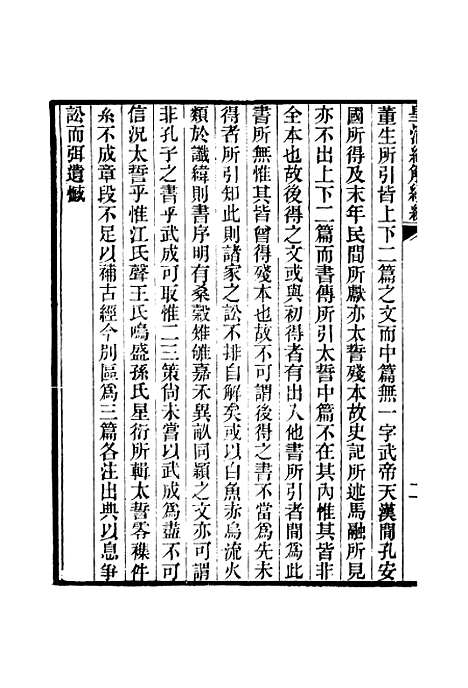 皇清經解續編
二
董生所引皆上下二篇之文而中篇無一字武帝天漢閒孔安
國所得及末年民間所獻亦太誓殘本故史記所述馬融所見
亦不出上下二篇而書傳所引太誓中篇不在其內惟其皆非
全本也故後得之文或與初得者有出入他書所引者閒為此
書所無惟其皆曾得殘本也故不可謂後得之書不當為先未
得者所引知此則諸家之訟不排自解矣或以白魚赤烏流火
類於讖緯則書序明有桑穀雉雊嘉禾異畝同穎之文亦可謂
非孔子之書乎武成可取惟二三策尚未嘗以武成為盡不可
信況太誓乎惟江氏聲王氏鳴盛孫氏星衍所輯太誓畧稡件
系不成章段不足以補古經今別區為三篇各注出典以息爭
訟而弭遺憾